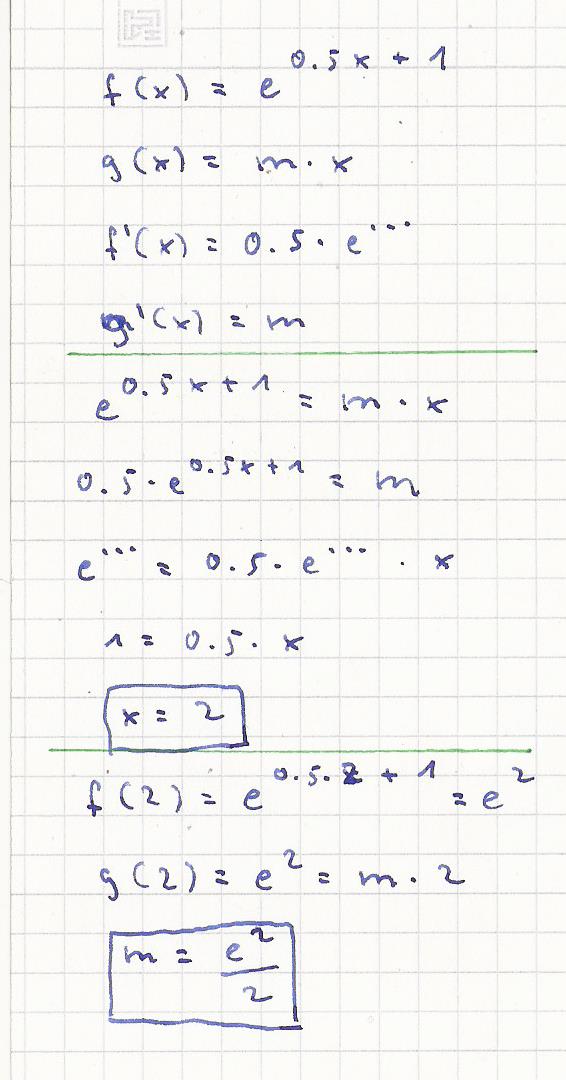 f(x) = e^{0.5x + 1}
g(x) = m · x
f'(x) = 0.5 · e^{...}
g'(x) = m
e^{0.5x + 1} = m · x
0.5 · e^{0.5x + 1} = m
e^{...} = 0.5 · e^{...} · x
1 = 0.5 · x
x = 2
f(2) = e^{0.5·2 + 1} = e^2
g(2) = e^2 = m · 2
m = e^2/2